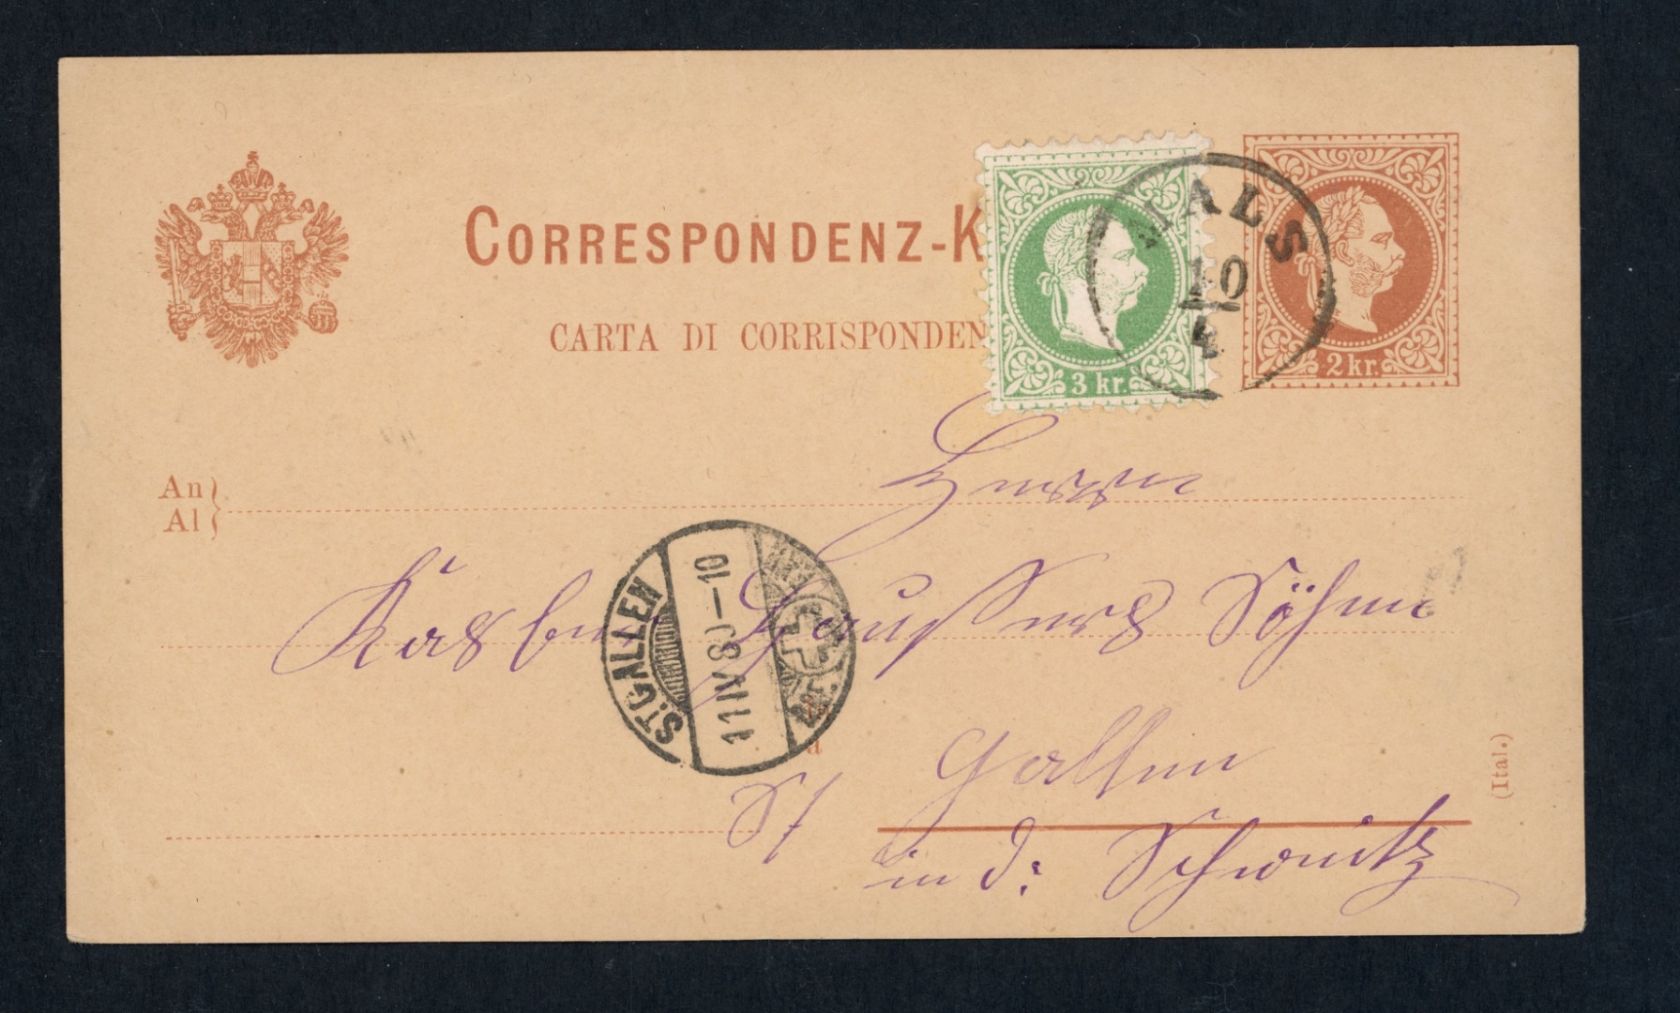 CORRESPONDENZ-K
CARTA DI CORRISPONDEN
3 kr.
2 kr.
MALS
10
4
An
Al
Herrn
Söhne
ST. GALLEN
11 IV 80 – 10
St Gallen
in d: Schweitz
(Ital.)